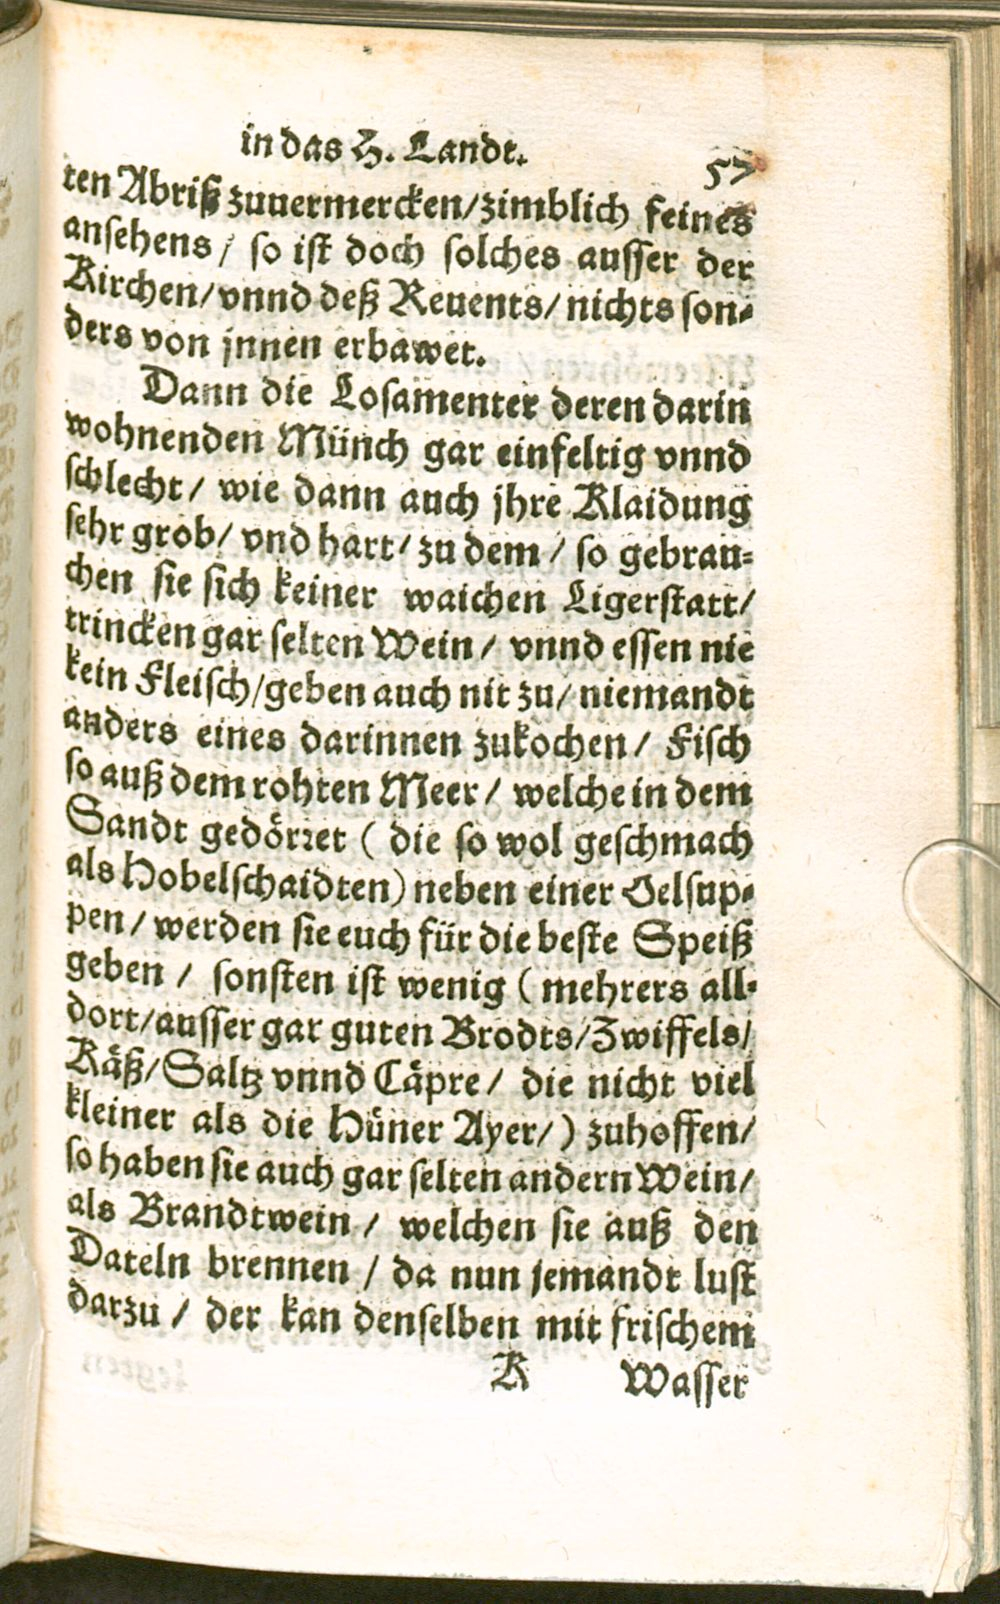 in das H. Landt.
57
ten Abriß zuuermercken/zimblich feines
ansehens/ so ist doch solches ausser der
Kirchen/vnnd deß Reuents/nichts son-
ders von jnnen erbawet.
Dann die Losamenter deren darin
wohnenden Münch gar einfeltig vnnd
schlecht/ wie dann auch jhre Klaidung
sehr grob/ vnd hart/ zu dem/ so gebrau-
chen sie sich keiner waichen Ligerstatt/
trincken gar selten Wein/ vnnd essen nie
kein Fleisch/geben auch nit zu/ niemandt
anders eines darinnen zukochen/ Fisch
so auß dem rohten Meer/ welche in dem
Sandt gedörret ( die so wol geschmach
als Hobelschaidten) neben einer Oelsup-
pen/ werden sie euch für die beste Speiß
geben/ sonsten ist wenig ( mehrers all-
dort/ausser gar guten Brodts/Zwiffels/
Käß/Saltz vnnd Cäpre/ die nicht viel
kleiner als die Hüner Ayer/) zuhoffen/
so haben sie auch gar selten andern Wein/
als Brandtwein/ welchen sie auß den
Dateln brennen/ da nun jemandt lust
darzu/ der kan denselben mit frischem
K Wasser